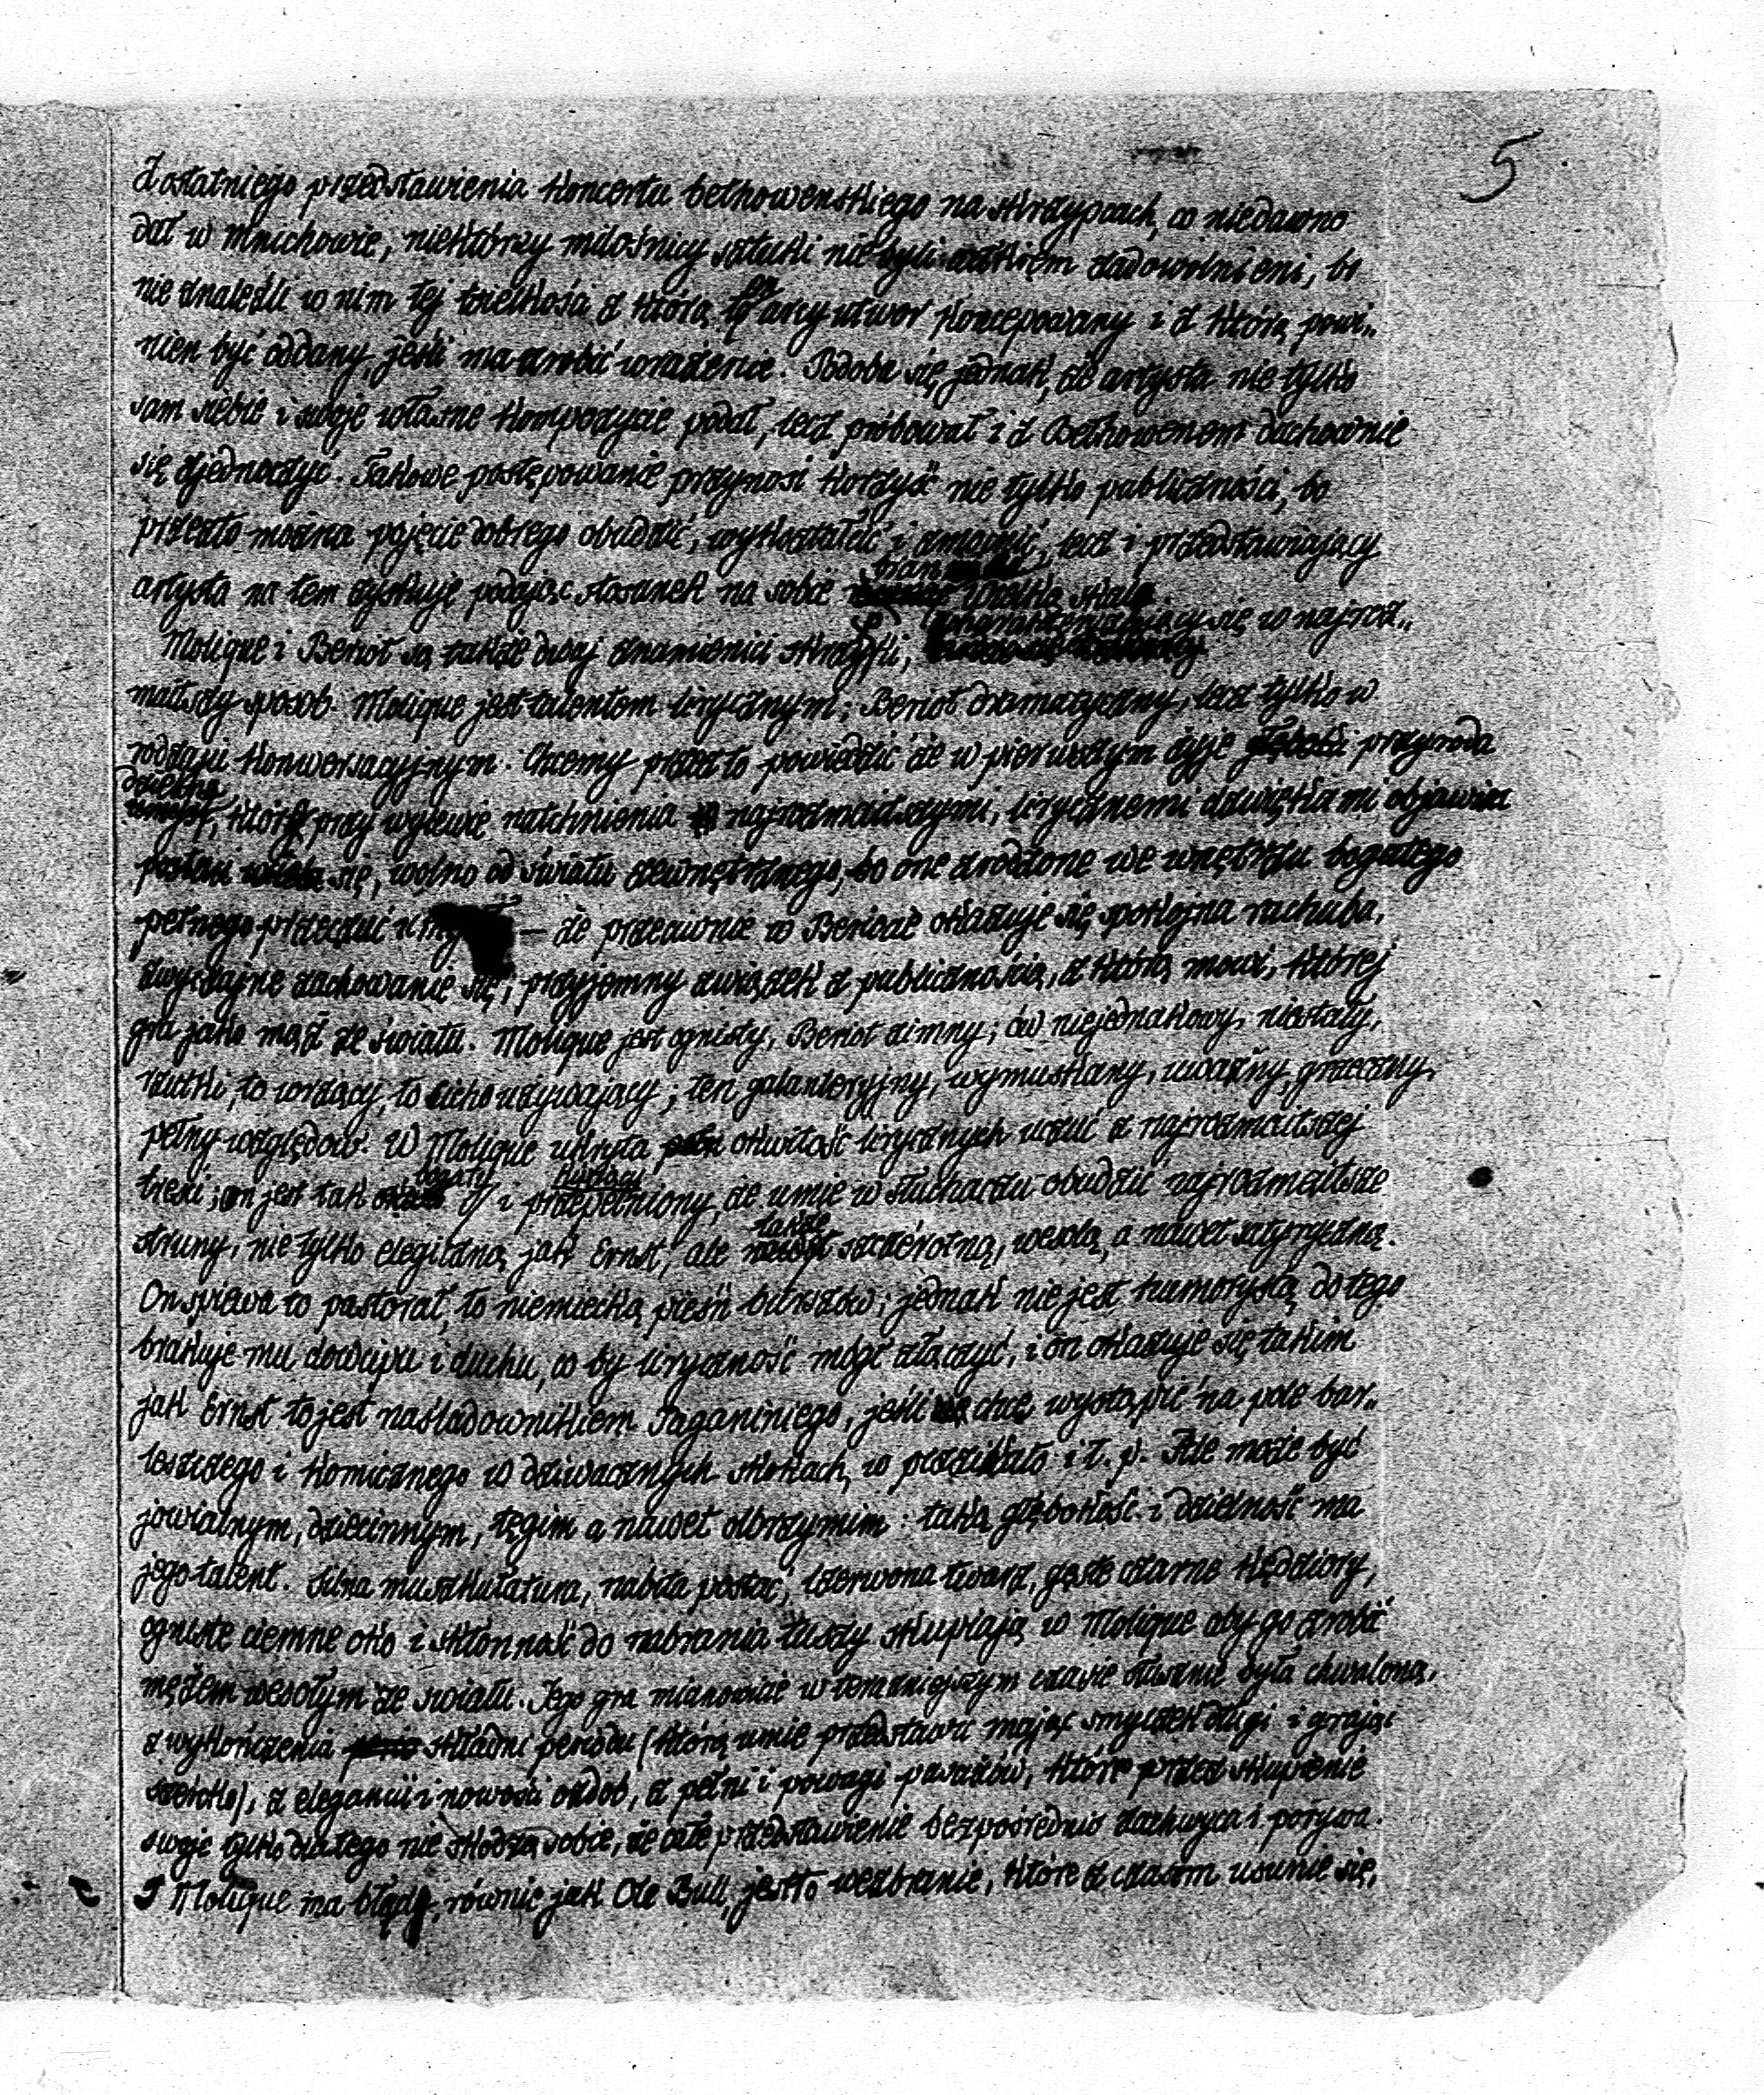 5
Z ostatniego przedstawienia koncertu bethowenskiego na skrzypcach, co niedawno
dał w Mnichowie, niektórzy miłośnicy sztuki nie byli zadowolnieni, bo
nie znaleźli w nim tej wielkości z którą ten arcyutwor koncepowany i z którą powi„
nien być oddany, jeśli ma zrobić wrażenie. Podoba się jednak, że artysta nie tylko
sam siebie i swoje własne kompozycie podał, lecz próbował i z Bethowenem duchownie
się zjednoczyć. Takowe postępowanie przynosi korzyść nie tylko publiczności, bo
przezto można pojęcie dobrego obudzić, wykształcić i lecz i przedstawiający
artysta na tem zyskuje podając stosunek na sobie wielką skalę.
Molique i Beriot są także dwaj znamienici skrzypki, się w najroz„
maitszy sposob. Molique jest talentom lirycznym; Beriot dramatyczny, lecz tylko w
rodzaju konwersacyjnym. Chcemy przez to powiedzić że w pierwszym żyje przyroda
dzielna, która przy wylewie natchnienia najrozmaitszymi, lirycznemi dzwiękami objawia
się, wolno od świata zewnętrznego, bo one zrodzone we wnętrzu bogatego
pełnego przeczuć — że przeciwnie w Beriocie okazuje się spokojna rachuba,
zwyczajne zachowanie się, przyjemny związek z publicznością, z którą mowi, której
gra jako mąż ze świata. Molique jest ognisty, Beriot zimny; ów niejednakowy, niestały,
to wrzący, to ten galanteryjny, wymuskany, uważny, grzeczny,
pełny względow. W Molique ukryta okwitość lirycznych uczuć z najrozmaitszej
treści; on jest tak bogaty i przepełniony, że umie w słuchaczu obudzić najrozmaitsze
struny, nie tylko elegiczną jak Ernst, ale także szczérotną, wesołą, a nawet satyryczną.
On spiewa to pastorał, to niemiecką pieśń burszów; jednak nie jest humorystą, do tego
brakuje mu dowcipu i duchu, co by liryczność mógł złączyć, i on okazuje się takim
jak Ernst to jest naśladownikiem Paganiniego, jeśli chce wystąpić na pole bur„
leszczego i komicznego w dziwacznych skokach, w pizzikato i t. p. Ale może być
jowialnym, dziecinnym, tęgim a nawet olbrzymim: taką głębokość i dzielność ma
jego talent. Silna muszkulatura, nabita postać, czerwona twarz, gęste czarne kędziory,
ogniste ciemne oko i skłonność do nabrania tuszy skupiają w Molique aby go zrobić
mężem wesołym ze swiata. Jego gra mianowicie w terazniejszym czasie słusznie była chwalona,
z wykończenia składni periodu (którą umie przedstawić mając smyczek długi i grając
szeroko), z elegancii i nowości ozdob, z pełni i powagi pasażów, które przez skupienie
swoje tylko dlatego nie szkodzą sobie, że całe przedstawienie bezpośrednio zachwyca i porywa.
I Molique ma błędy, równie jak Ole Bull, jestto wezbranie, które z czasom usunie się,